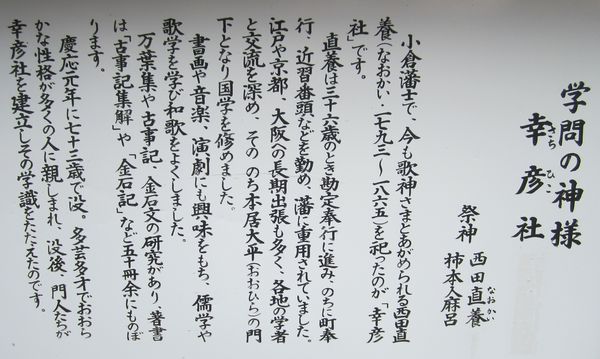 学問の神様
幸彦社
さちひこ
祭神 西田直養
なおかい
柿本人麻呂
小倉藩士で、今も歌神さまとあがめられる西田直
養(なおかい、一七九三〜一八六五)を祀ったのが「幸彦
社」です。
直養は三十六歳のとき勘定奉行に進み、のちに町奉
行、近習番頭などを勤め、藩に重用されていました。
江戸や京都、大阪への長期出張も多く、各地の学者
と交流を深め、その のち本居大平(おおひら)の門
下となり国学を修めました。
書画や音楽、演劇にも興味をもち、儒学や
歌学を学び和歌をよくしました。
万葉集や古事記、金石文の研究があり、著書
は「古事記集解」や「金石記」など五十冊余にものぼ
ります。
慶応元年に七十三歳で没。多芸多才でおおら
かな性格が多くの人に親しまれ、没後、門人たちが
幸彦社を建立しその学識をたたえたのです。